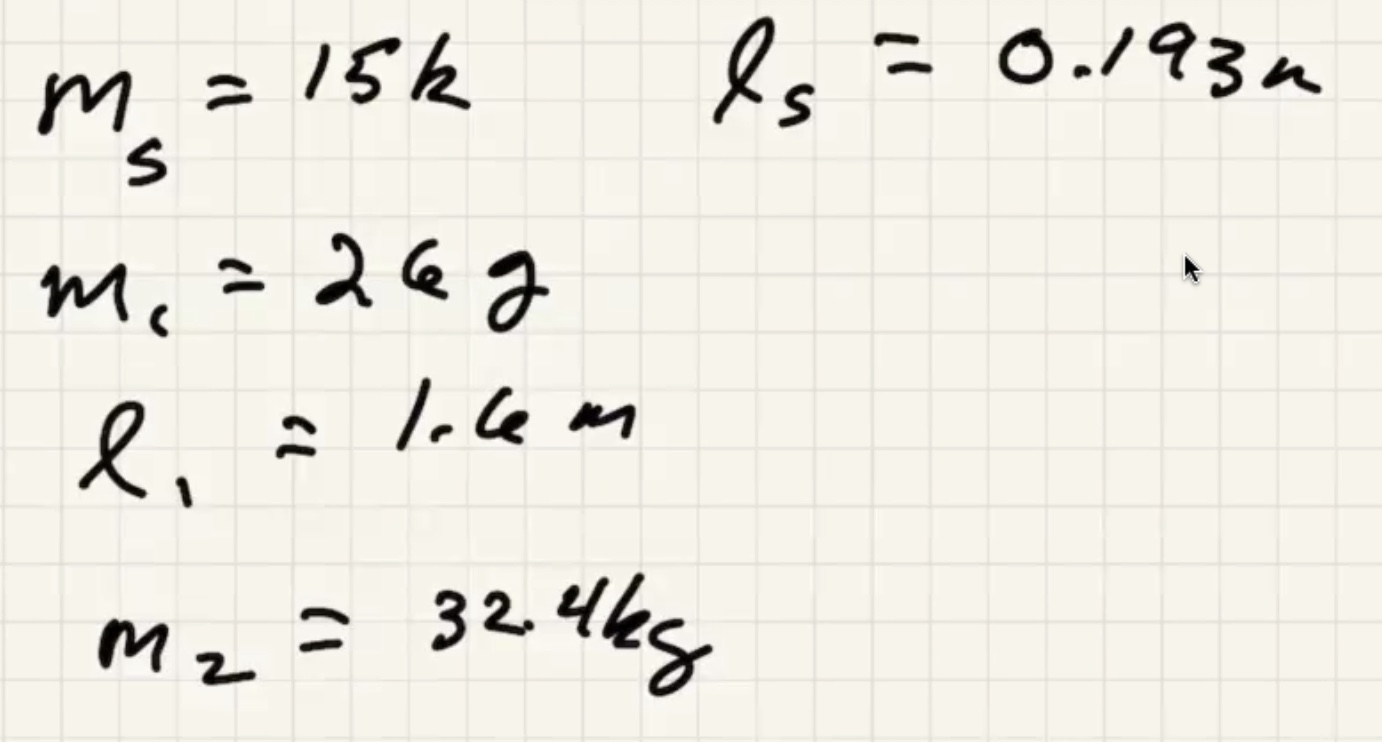 mₛ = 15k lₛ = 0.193m
m꜀ = 26 g
l₁ = 1.6 m
m₂ = 32.4kg